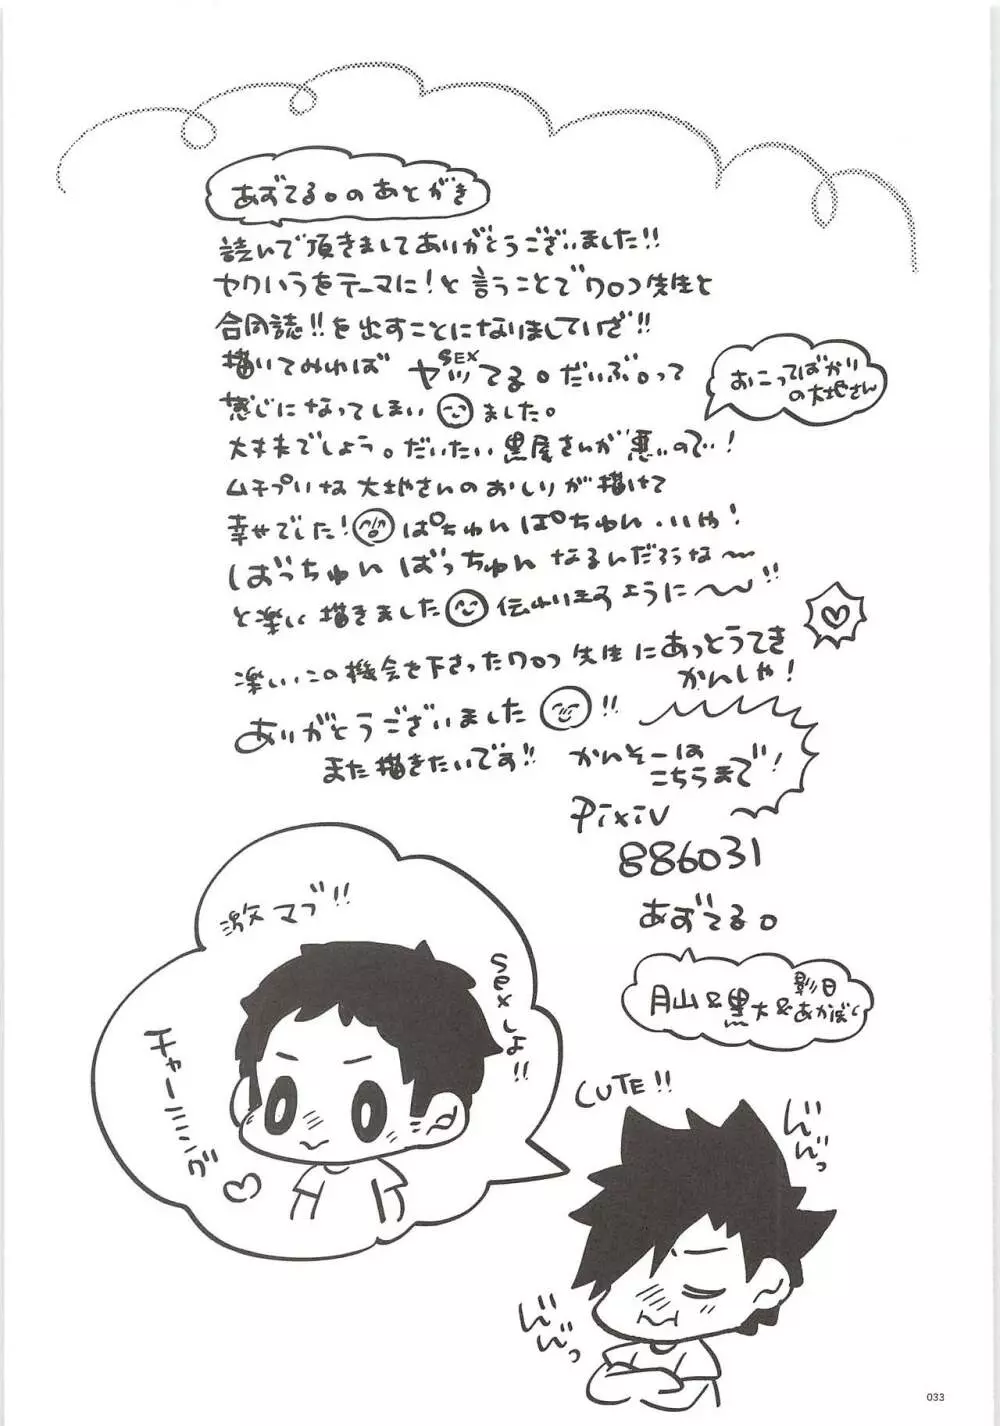 あずてる。のあとがき
読んで頂きましてありがとうございました!!
ヤクいうをテーマに!と言うことでワロコ先生と
合同誌!!を出すことになりましていざ!!
描いてみれば ヤッてる。だいぶ。って
SEX
感じになってしまいました。
おこってばかり
の大地さん
大丈夫でしょう。だいたい黒尾さんが悪いので…!
ムチプリな大地さんのおしりが描けて
幸せでした!ぱちゅんぱちゅん・いや!
ばっちゅんばっちゅんなるんだろうな〜
と楽しい描きました伝わりますように〜!!
楽しいこの機会を下さったワロコ先生にあっとうてき
かんしゃ!
ありがとうございました!!
また描きたいです!!
かんそーは
こちらまで!
Pixiv
886031
あずてる。
月山&黒大&影日
あかぼく
激マブ!!
sexしよ!!
チャーミング
CUTE!!
んんんっ
んんんっ
033